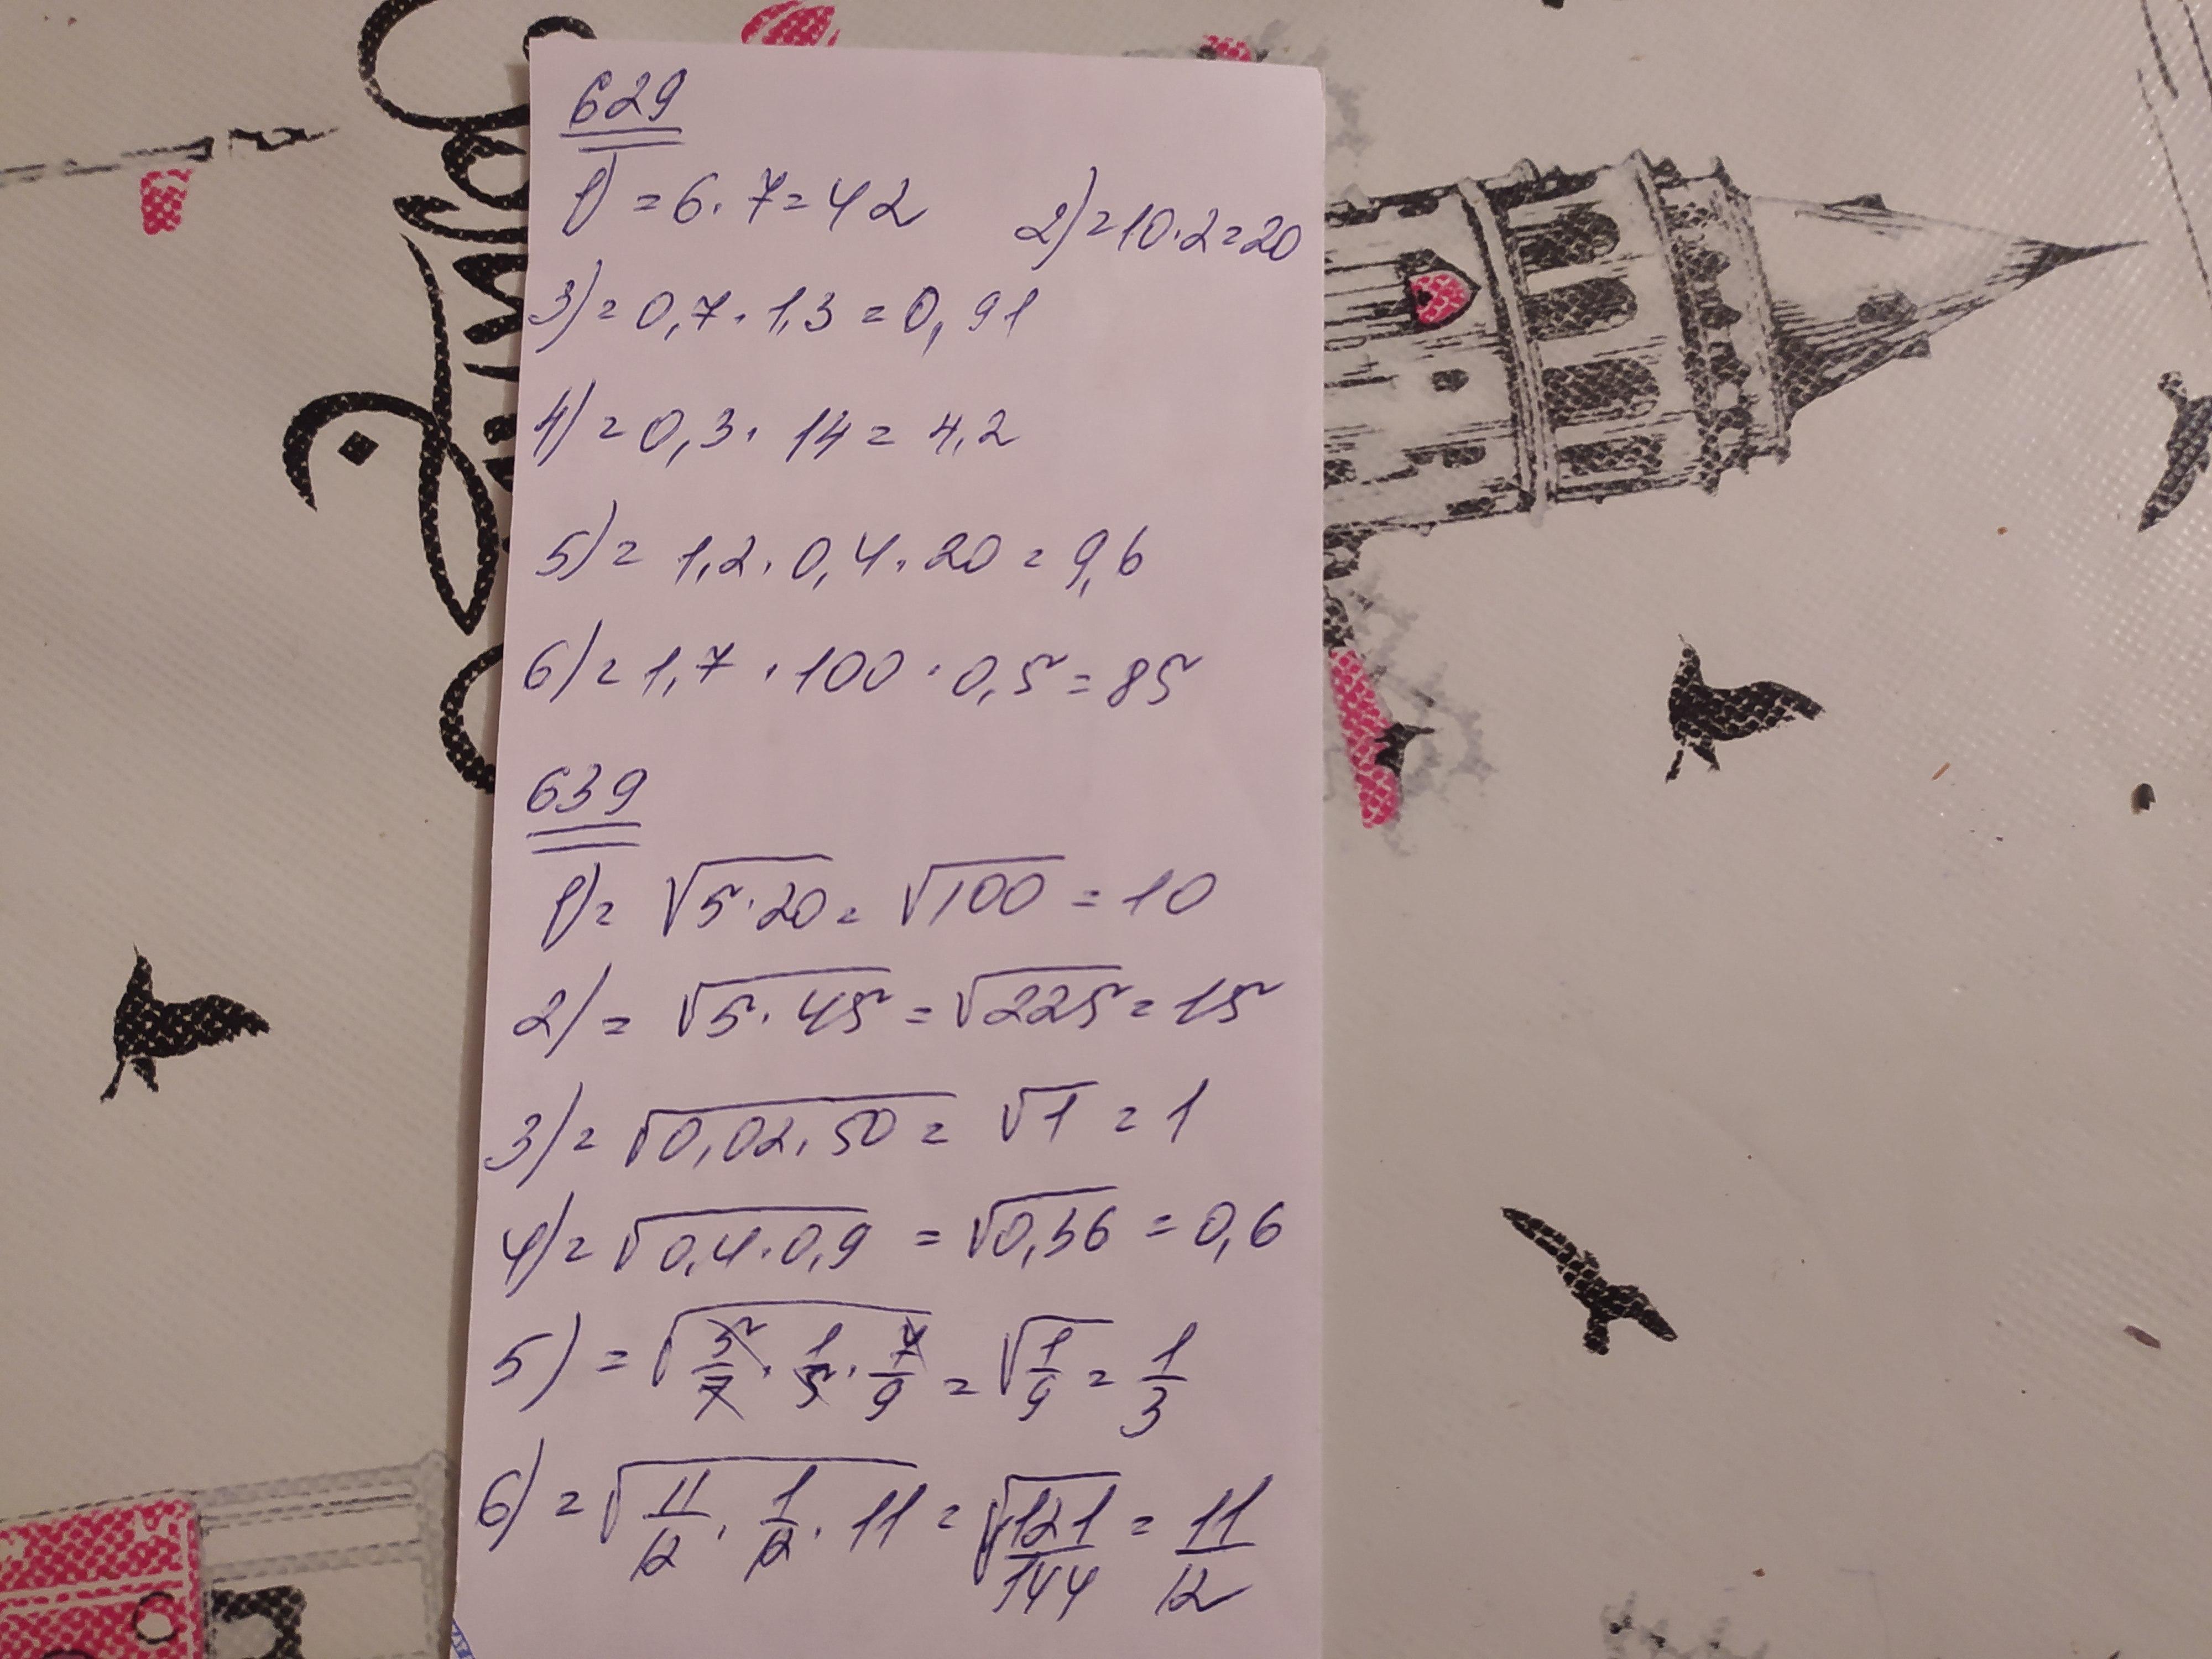 629
1) = 6 · 7 = 42 2) = 10 · 2 = 20
3) = 0,7 · 1,3 = 0,91
4) = 0,3 · 14 = 4,2
5) = 1,2 · 0,4 · 20 = 9,6
6) = 1,7 · 100 · 0,5 = 85
639
1) = √(5 · 20) = √100 = 10
2) = √(5 · 45) = √225 = 15
3) = √(0,02 · 50) = √1 = 1
4) = √(0,4 · 0,9) = √0,36 = 0,6
5) = √(5/7 · 1/5 · 7/9) = √(1/9) = 1/3
6) = √(11/12 · 1/12 · 11) = √(121/144) = 11/12